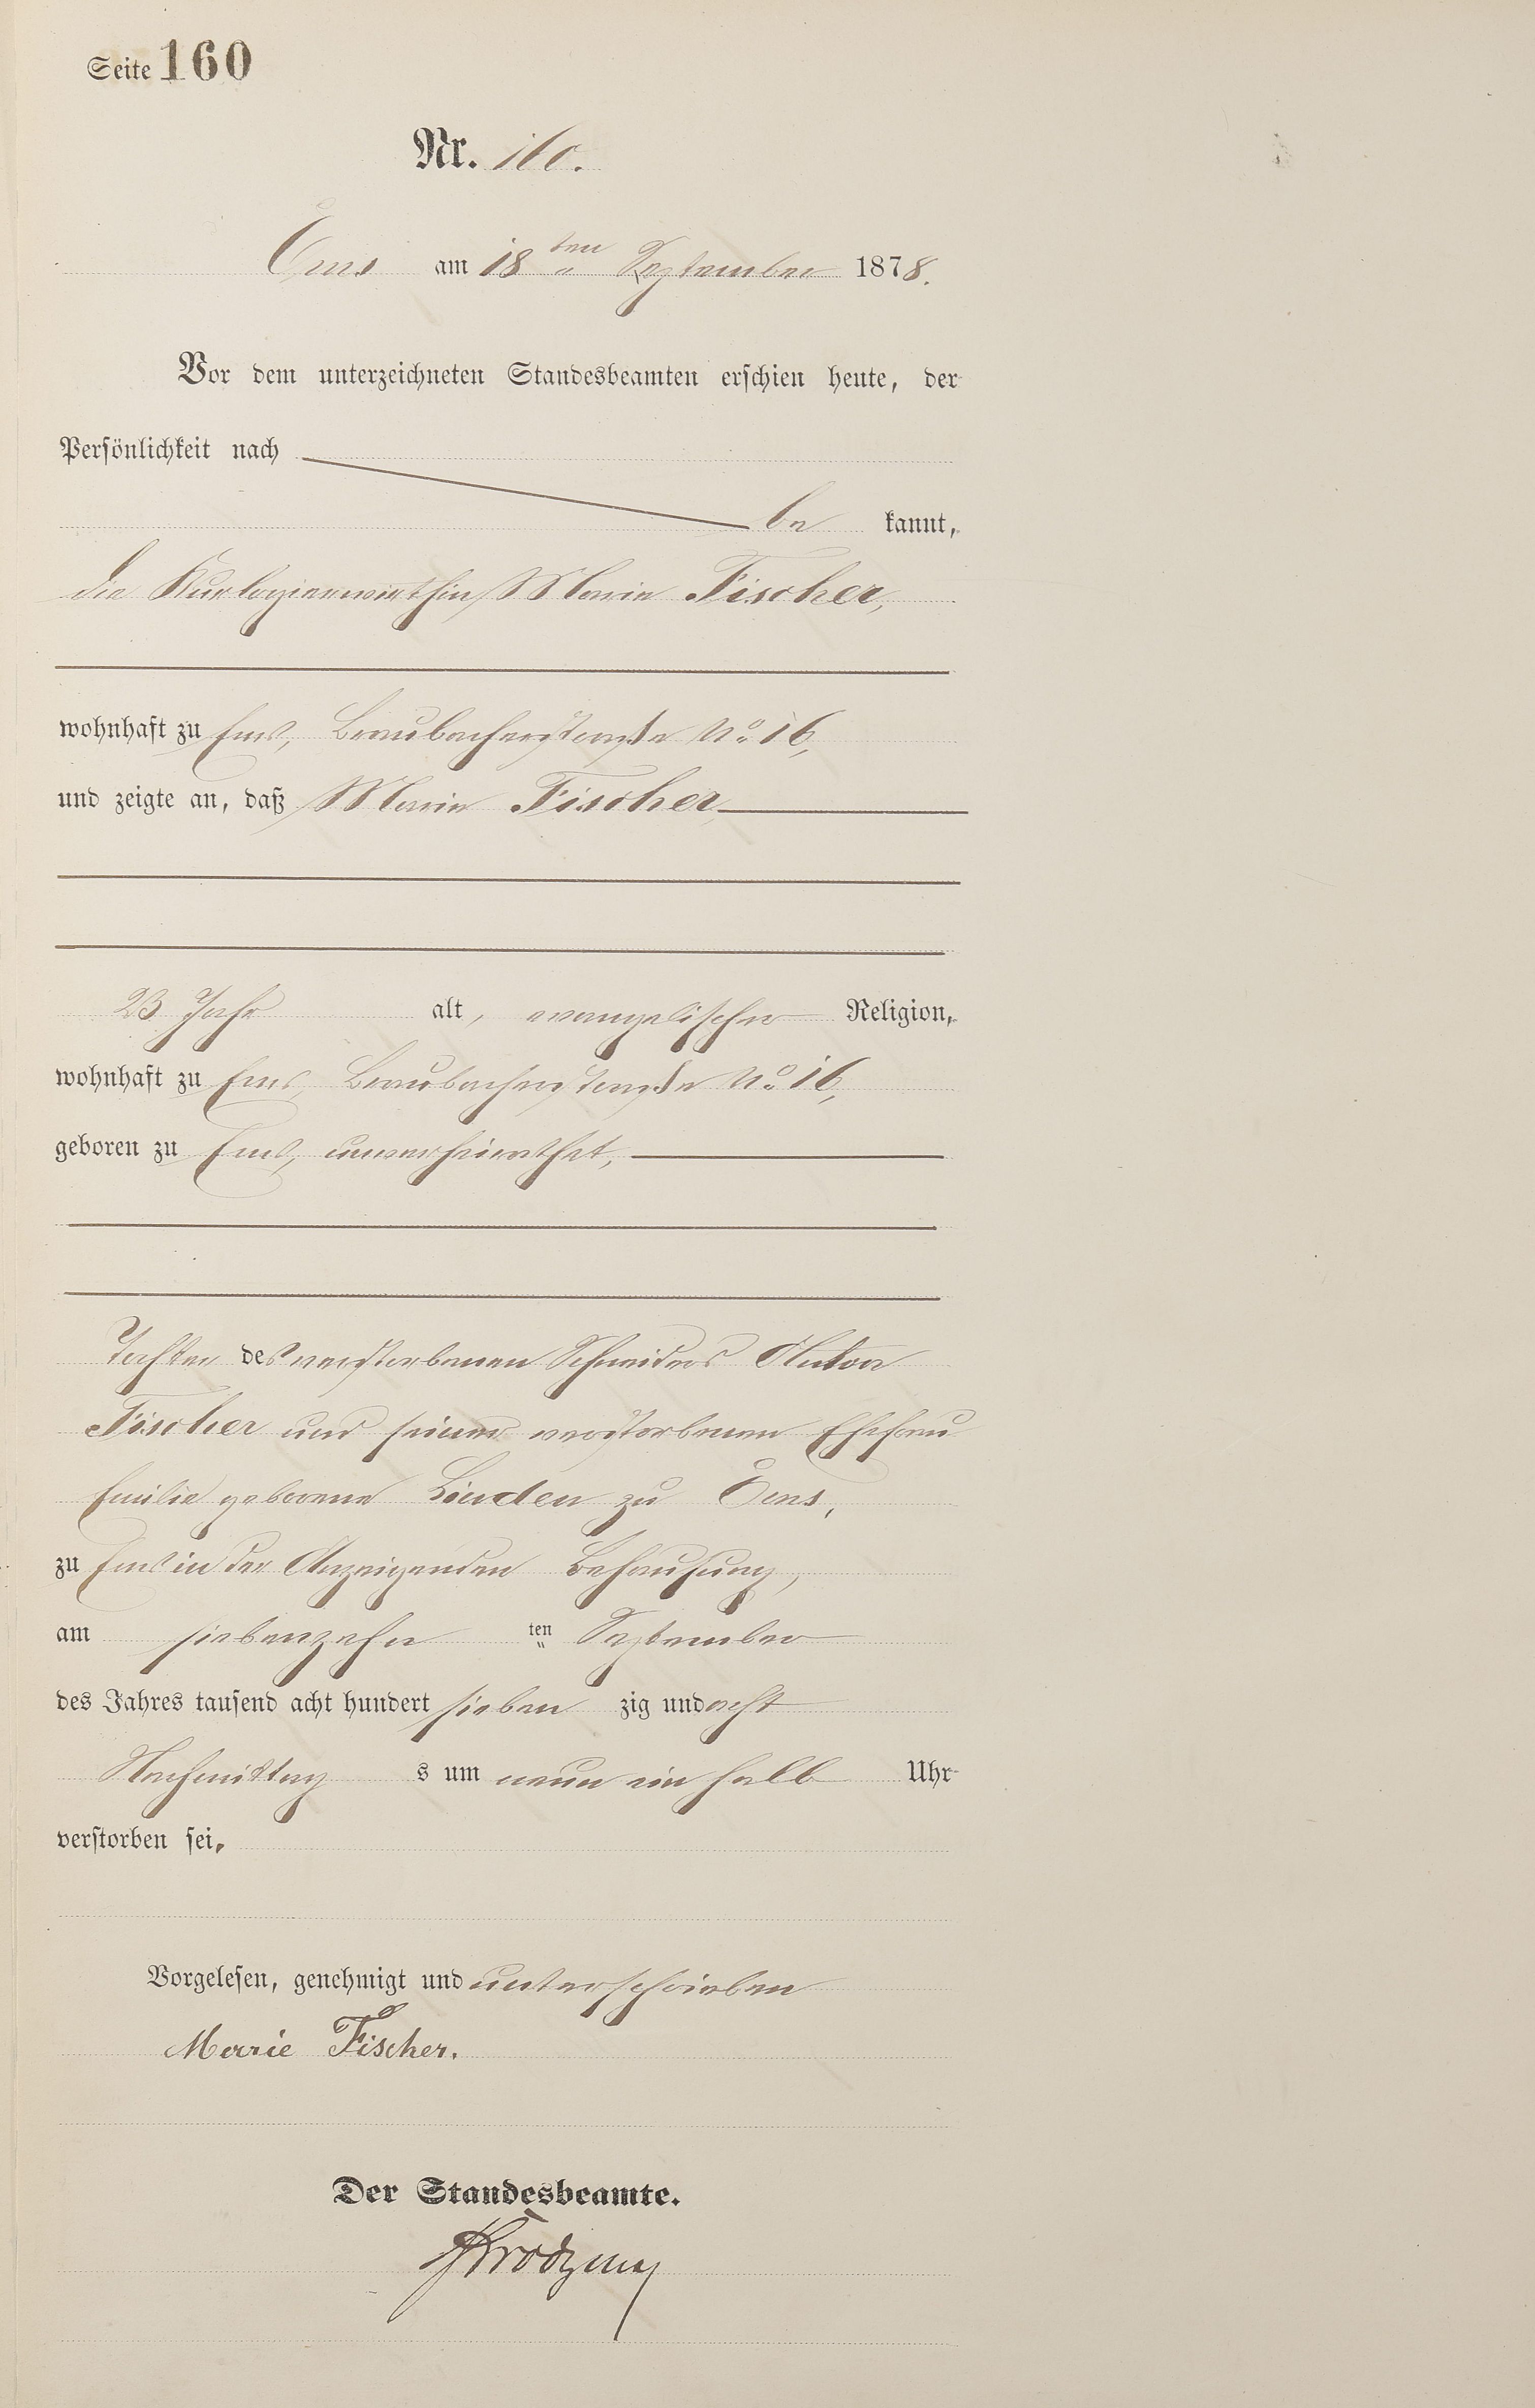 Seite 160
Nr. 160.
Ems am 18ten September 1878.
Vor dem unterzeichneten Standesbeamten erschien heute, der
Persönlichkeit nach
be kannt,
die Kurlogierwirthin Marie Fischer,
wohnhaft zu Ems, Braubacherstraße No 16,
und zeigte an, daß Marie Fischer,
23 Jahr alt, evangelischer Religion,
wohnhaft zu Ems, Braubacherstraße No 16,
geboren zu Ems, unverheirathet,
Tochter des verstorbenen Schneiders Anton
Fischer und seiner verstorbenen Ehefrau
Emilie geborene Linden zu Ems,
zu Ems in der Anzeigenden Behausung,
am siebenzehn ten September
des Jahres tausend acht hundert sieben zig und acht
Nachmittag s um neun ein halb Uhr
verstorben sei.
Vorgelesen, genehmigt und unterschrieben
Marie Fischer.
Der Standesbeamte.